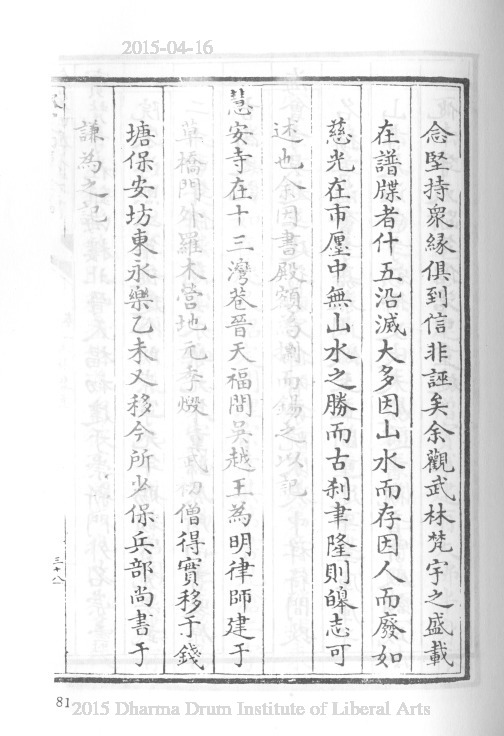 2015-04-16
念堅持衆緣俱到信非誣矣余觀武林梵宇之盛載
在譜牒者什五沿滅大多因山水而存因人而廢如
慈光在市廛中無山水之勝而古刹聿隆則皞志可
述也余因書殿額為制而錫之以記
慧安寺在十三灣巷晉天福間吳越王為明律師建于
草橋門外羅木營地元季燬 僧得實移于錢
塘保安坊東永樂乙未又移今所少保兵部尚書于
謙為之記
三十八
81
2015 Dharma Drum Institute of Liberal Arts